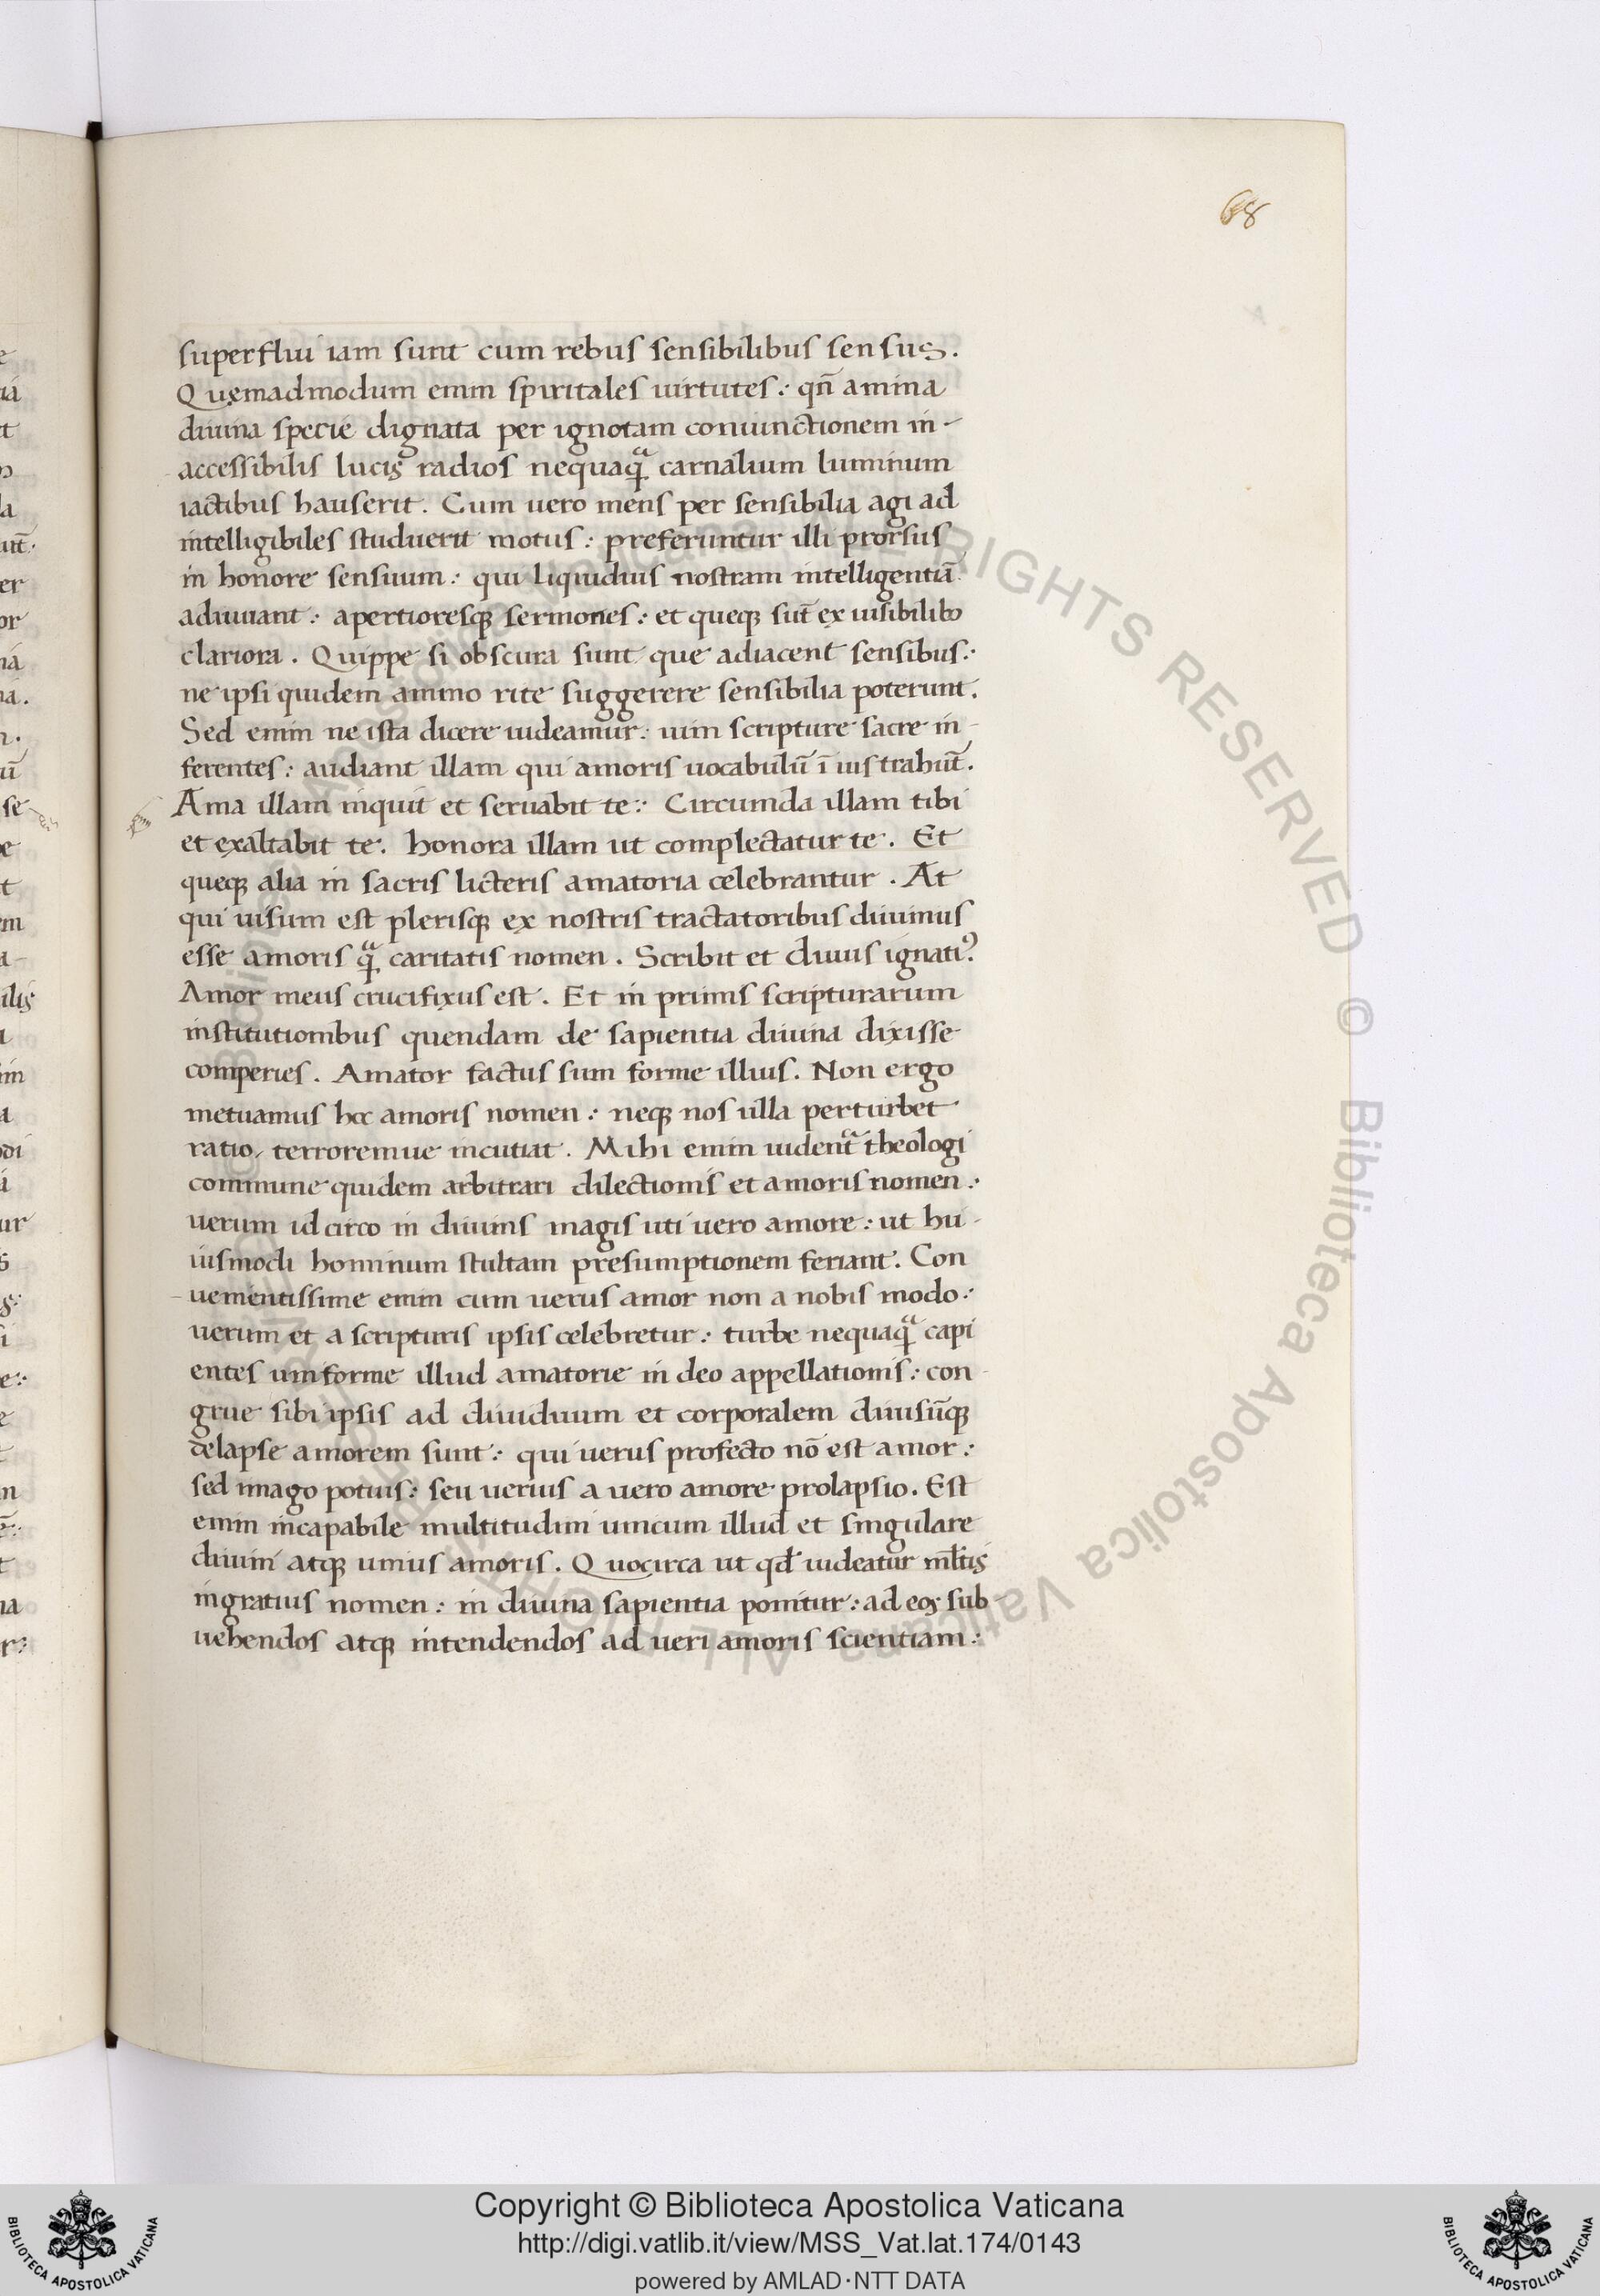 68
superflui iam sunt cum rebus sensibilibus sensus.
Quemadmodum enim spiritales uirtutes: qn̄ anima
diuina specie dignata per ignotam coniunctionem in-
accessibilis lucis radios nequaqᷓ carnalium luminum
iactibus hauserit. Cum uero mens per sensibilia agi ad
intelligibiles studuerit motus: preferuntur illi prorsus
in honore sensuum: qui liquidius nostram intelligentiā
adiuuant: apertioresqꝫ sermones: et queqꝫ sūt ex uisibilibꝰ
clariora. Quippe si obscura sunt que adiacent sensibus:
ne ipsi quidem animo rite suggerere sensibilia poterunt.
Sed enim ne ista dicere uideamur: uim scripture sacre in-
ferentes: audiant illam qui amoris uocabulū ī ius trahūt.
Ama illam inquit et seruabit te: Circumda illam tibi
et exaltabit te. honora illam ut complectatur te. Et
queqꝫ alia in sacris licteris amatoria celebrantur. At
qui uisum est plerisqꝫ ex nostris tractatoribus diuinius
esse amoris qᷓ caritatis nomen. Scribit et diuus ignatiꝰ
Amor meus crucifixus est. Et in primis scripturarum
institutionibus quendam de sapientia diuina dixisse
comperies. Amator factus sum forme illius. Non ergo
metuamus hoc amoris nomen: neqꝫ nos ulla perturbet
ratio, terroremue incutiat. Mihi enim uidentᷓ theologi
commune quidem arbitrari dilectionis et amoris nomen:
uerum idcirco in diuinis magis uti uero amore: ut hu-
iusmodi hominum stultam presumptionem feriant. Con
uenientissime enim cum uerus amor non a nobis modo:
uerum et a scripturis ipsis celebretur: turbe nequaqᷓ capi
entes uniforme illud amatorie in deo appellationis: con-
grue sibi ipsis ad diuiduum et corporalem diuisūqꝫ
delapse amorem sunt: qui uerus profecto nō est amor:
sed imago potius: seu uerius a uero amore prolapsio. Est
enim incapabile multitudini unicum illud et singulare
diuini atqꝫ unius amoris. Quocirca ut qđ uideatur ml̄tis
ingratius nomen: in diuina sapientia ponitur: ad eos sub-
uehendos atqꝫ intendendos ad ueri amoris scientiam:
Copyright © Biblioteca Apostolica Vaticana
http://digi.vatlib.it/view/MSS_Vat.lat.174/0143
powered by AMLAD·NTT DATA
BIBLIOTECA APOSTOLICA VATICANA
BIBLIOTECA APOSTOLICA VATICANA